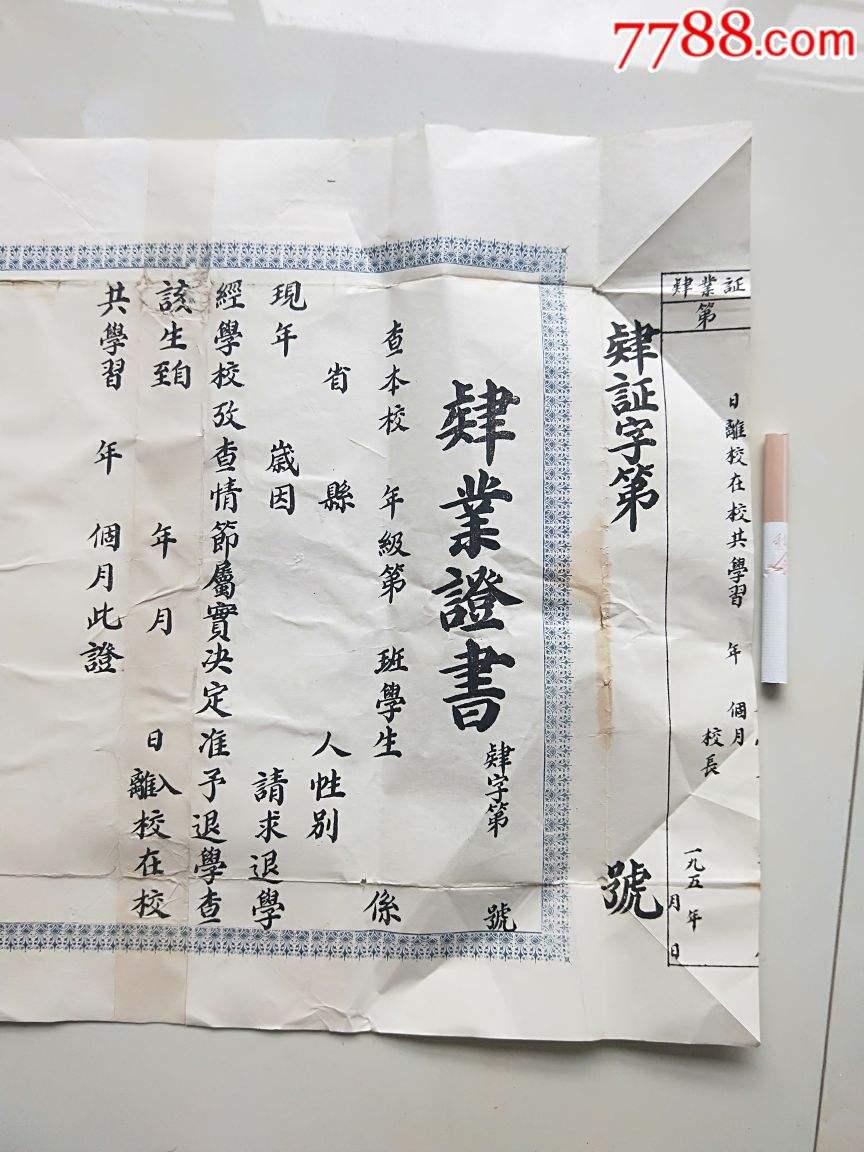 7788.com
肄業証
第
日離校在校共學習　年　個月
校長
一九五　年　月　日
肄証字第　號
肄業證書
肄字第　號
查本校　年級第　班學生　係
省　縣　人性別
現年　歲因　請求退學
經學校攷查情節屬實決定准予退學查
該生自至　年　月　日入離校在校
共學習　年　個月此證